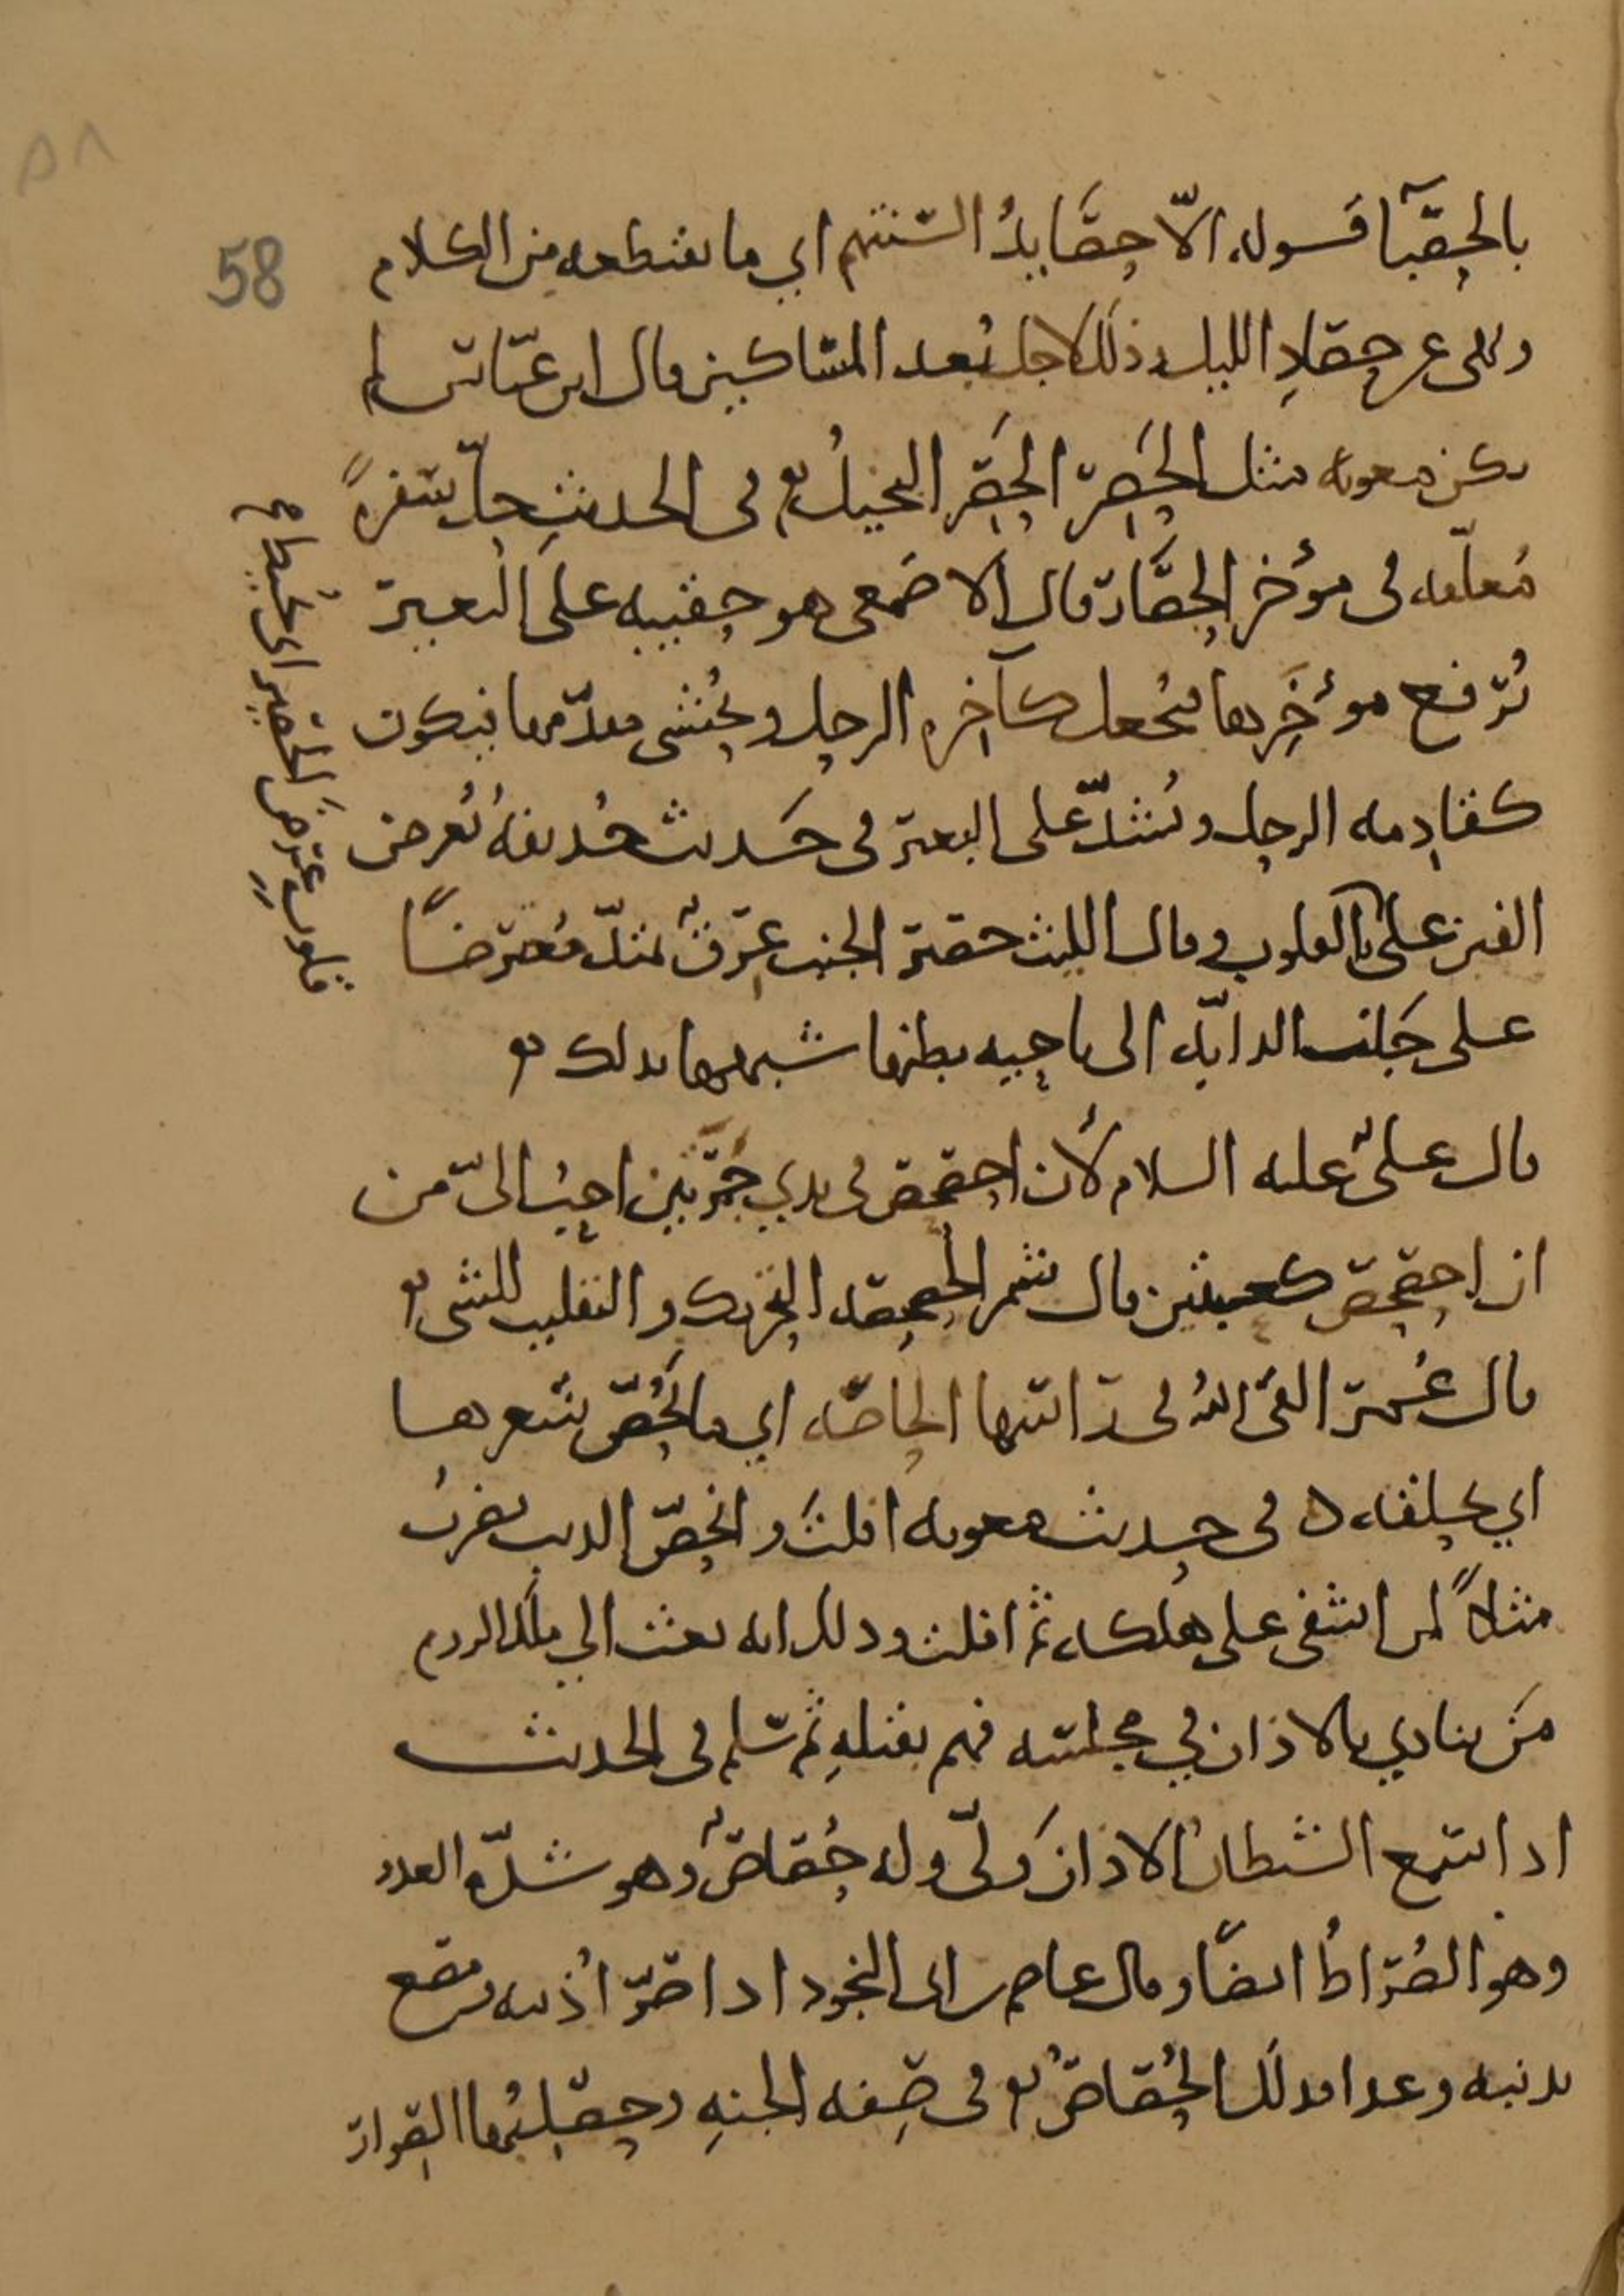 58
٥٨
بالحصبآ قـوله الّا حصَايدُ السنتهم اي ما تقتطعه من الكلام
ونهى عن حصادِ الليل وذلك لاجل بُعد المساكين قال ابن عبّاس لم
يكن معويه مثل الحَصِر الحَصِر البخيل في الحديث حلّ سفرةً
مُعلّقه في مؤخر الحِصَار قال الاصمعى هو حقيبه على البعير
تُرفع مؤخرها فيجعل كآخره الرحل ويُحشى مقدّمها فيكون
كقادِمه الرحل وتُشدّ على البعير في حَديث حُذيفهُ تُعرض
الفتن على القلوب وقال الليث حصير الجنب عِرقٌ يمتدّ مُعترضًا
على جَنب الدابّه الى ناحيه بطنها شبهها بذلك
قال علىٌ عليه السلام لأن احصحص في يدي جَمرَتَين احبّ الىّ من
ان احصحص كعبتين قال شمر الحصحصه التحريك والتقليب للشي
قال عُمر القى اللهُ في راسها الحاصّه اي ما تَحُصّ شعرها
اي يحلقه في حديث معويه افلتَ وانحصّ الذنب يضربُ
مثلاً لمن اشفى على هلكه ثم افلت وذلك انه بعث الي ملك الروم
مَن ينادي بالاذان في مجلسه فهم بقتلهِ ثم سلم في الحديث
اذا سمع الشيطانُ الاذان وَلّى وله حُصاصٌ وهو شدّه العدو
وهو الضُراطُ ايضًا وقال عاصم بن ابي النجود اذا صَرّ اُذنيه ومصع
بذنبه وعدا فذلك الحُصاصُ في صِفه الجنهِ وحِصلبُها الصوار
عرض الحصير اى تحيط
بالقلوب